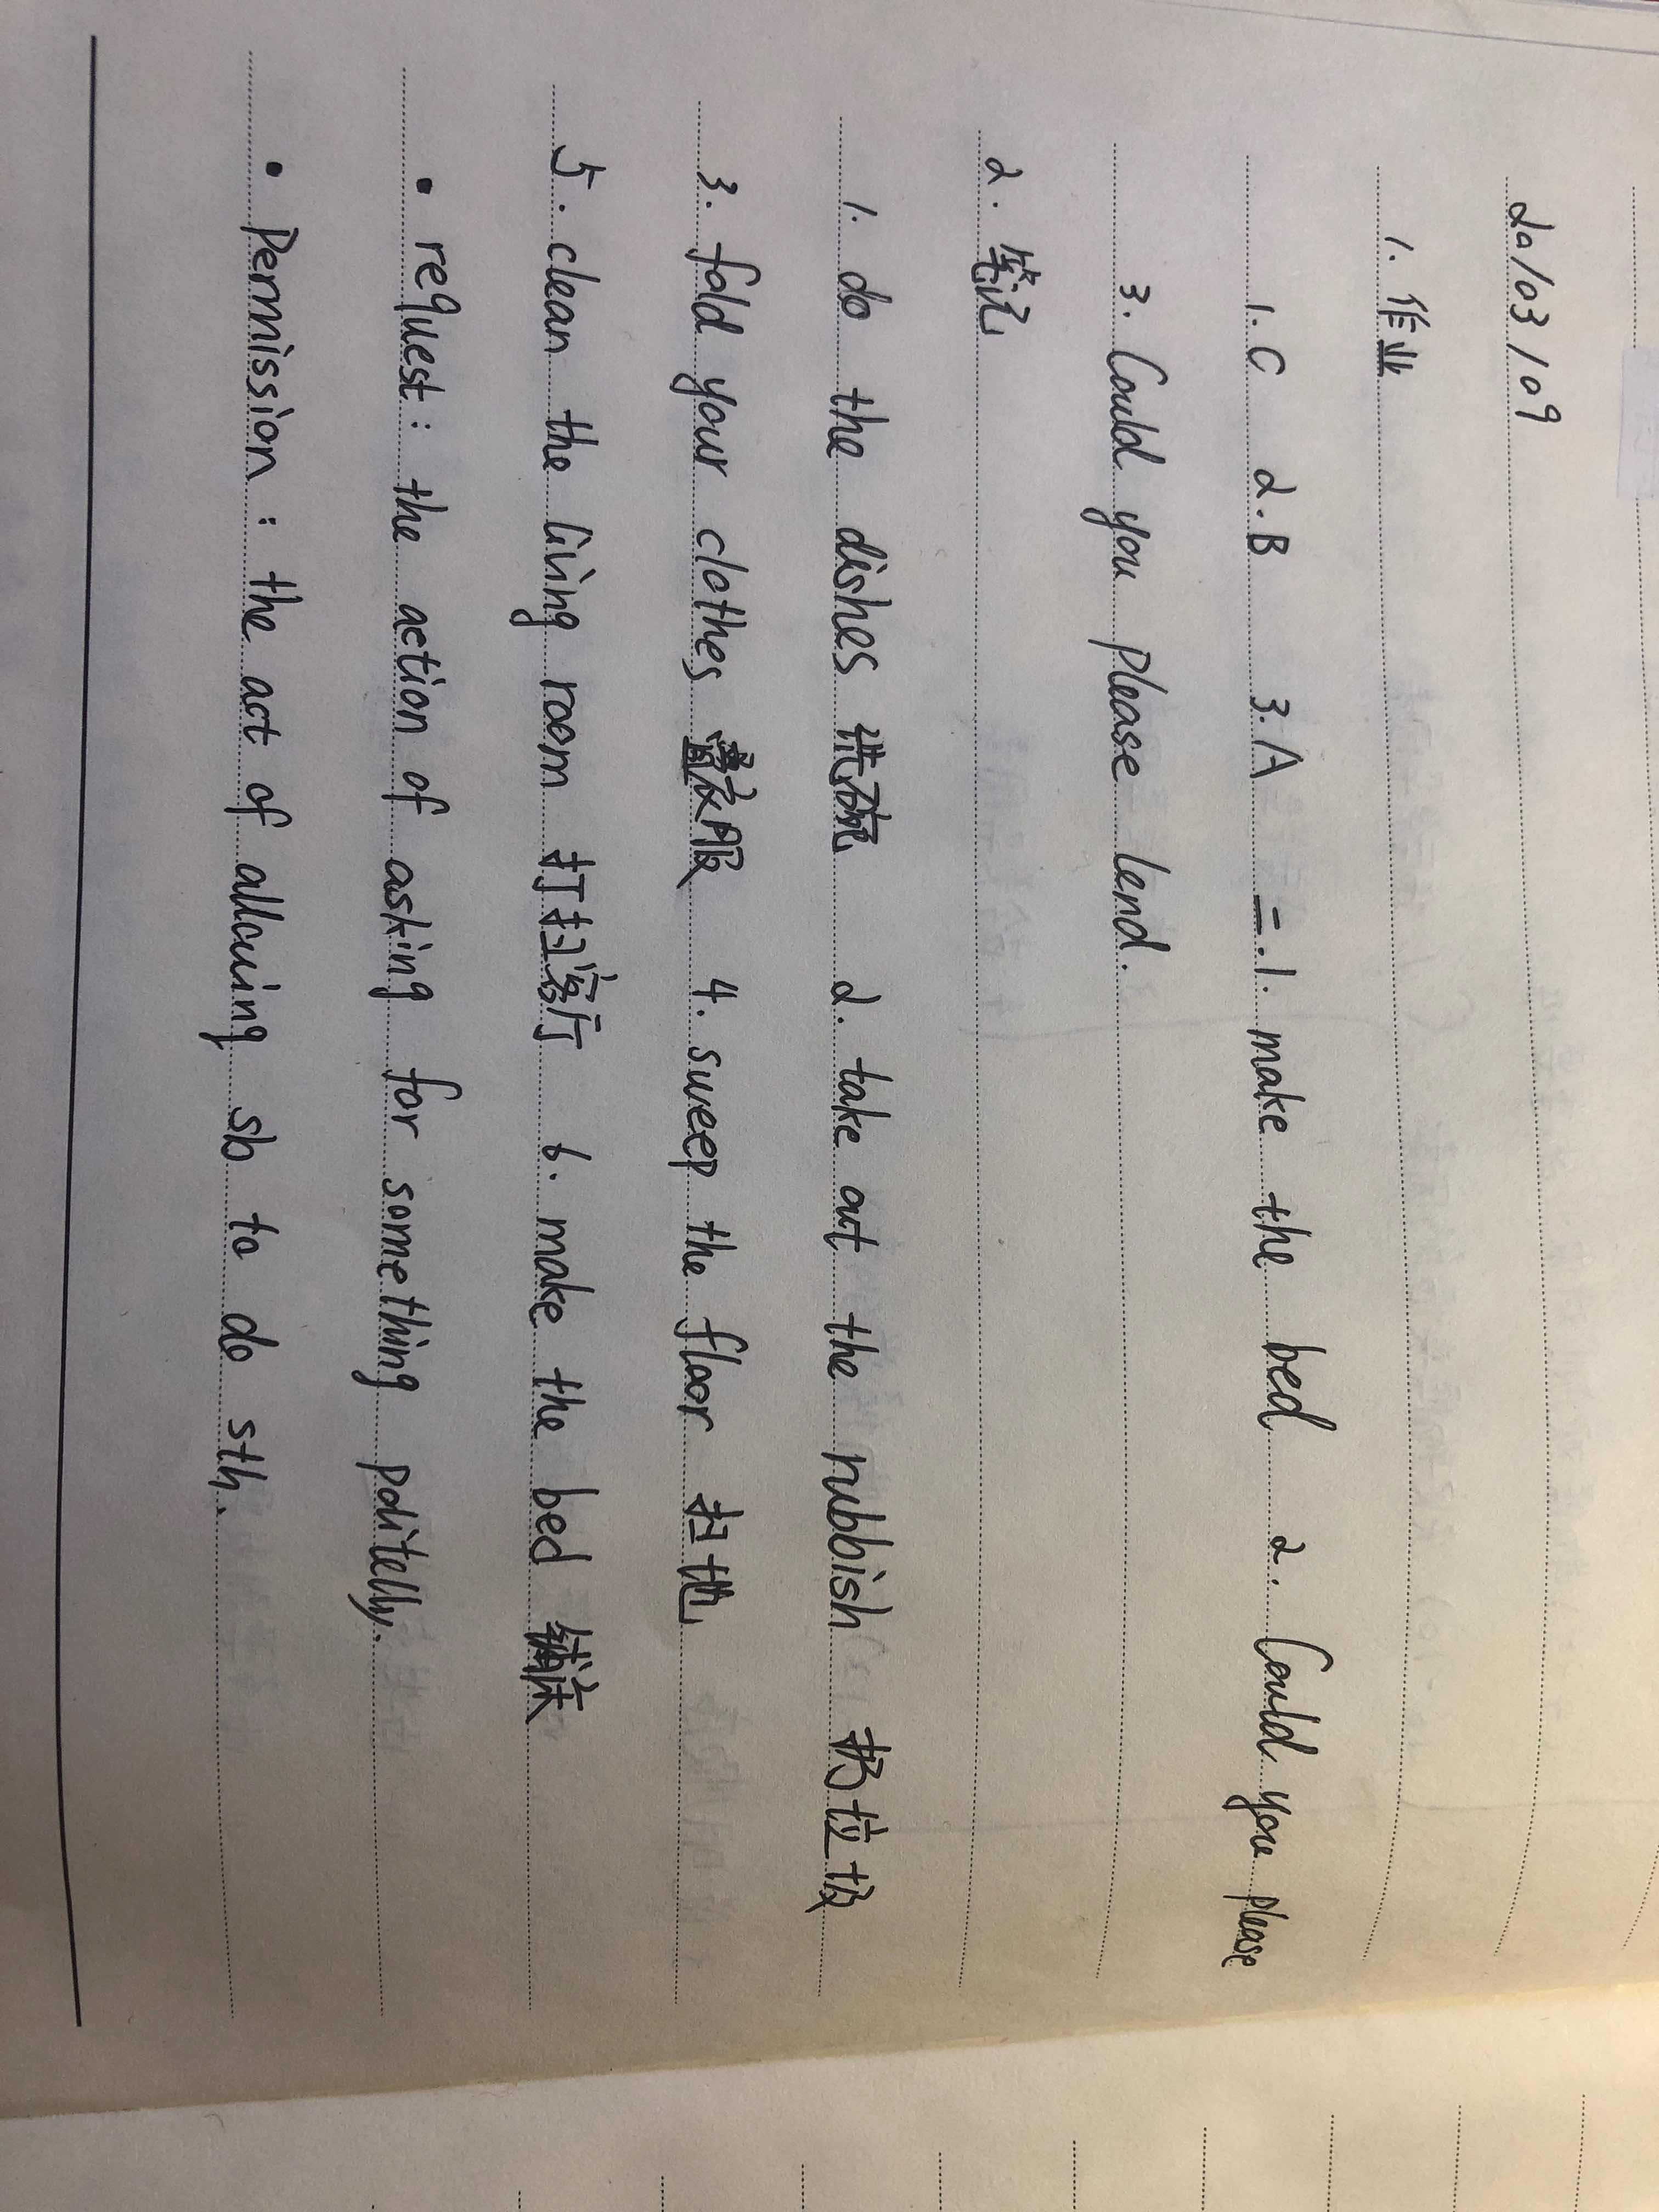 20/03/09
1. 作业
1. C 2. B 3. A 二. 1. make the bed 2. Could you please
3. Could you please lend.
2. 笔记
1. do the dishes 洗碗 2. take out the rubbish 扔垃圾
3. fold your clothes 叠衣服 4. sweep the floor 扫地
5. clean the living room 打扫客厅 6. make the bed 铺床
• request: the action of asking for something politelly.
• Permission: the act of allowing sb to do sth.